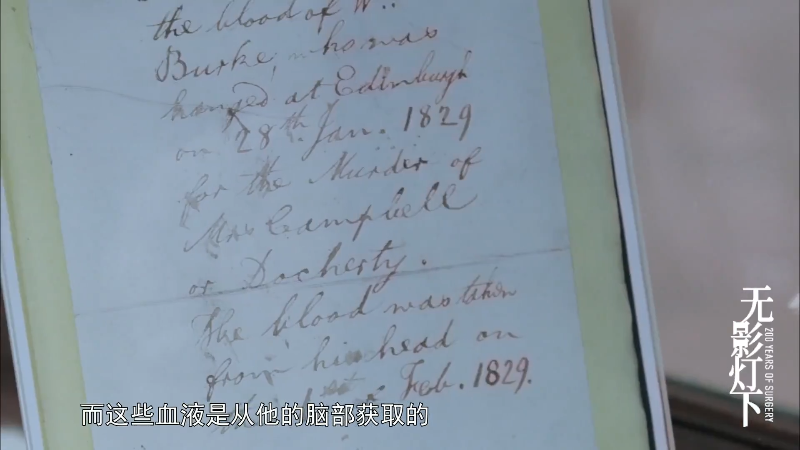 the blood of W..
Burke, who was
hanged at Edinburgh
on 28th Jan. 1829
for the Murder of
Mrs Campbell
or Docherty.
The blood was taken
from his head on
1st Feb. 1829.
而这些血液是从他的脑部获取的
无影灯下
200 YEARS OF SURGERY